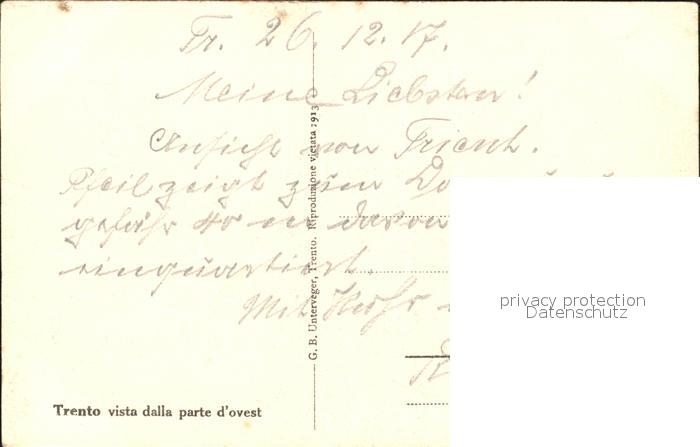 Tr. 26. 12. 17.
Meine Liebsten!
Ansicht von Trient.
Pfeil zeigt zum
gefähr 40 m davon
einquartiert.
Mit
G. B. Unterveger, Trento. Riproduzione vietata 1913
privacy protection
Datenschutz
Trento vista dalla parte d'ovest